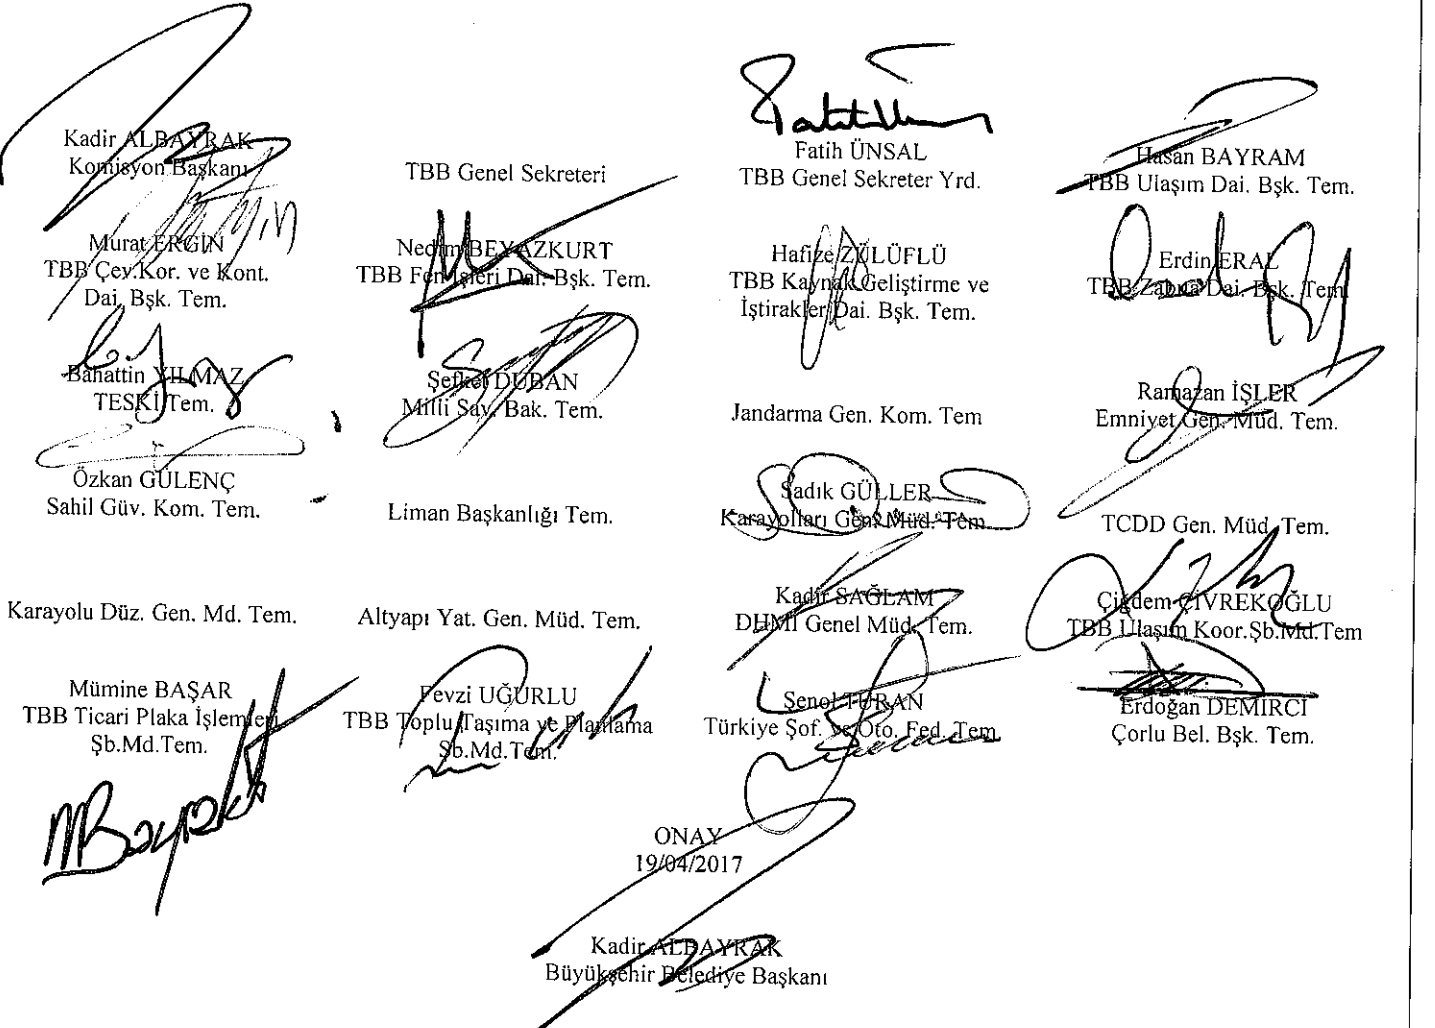 Kadir ALBAYRAK
Komisyon Başkanı
TBB Genel Sekreteri
Fatih ÜNSAL
TBB Genel Sekreter Yrd.
Hasan BAYRAM
TBB Ulaşım Dai. Bşk. Tem.
Murat ERGİN
TBB Çev.Kor. ve Kont.
Dai. Bşk. Tem.
Nedim BEYAZKURT
TBB Fen İşleri Dai. Bşk. Tem.
Hafize ZÜLÜFLÜ
TBB Kaynak Geliştirme ve
İştirakler Dai. Bşk. Tem.
Erdin ERAL
TBB Zabıta Dai. Bşk. Tem.
Bahattin YILMAZ
TESKİ Tem.
Şefket DUBAN
Milli Sav. Bak. Tem.
Jandarma Gen. Kom. Tem
Ramazan İŞLER
Emniyet Gen. Müd. Tem.
Özkan GÜLENÇ
Sahil Güv. Kom. Tem.
Liman Başkanlığı Tem.
Sadık GÜLLER
Karayolları Gen. Müd. Tem
TCDD Gen. Müd. Tem.
Karayolu Düz. Gen. Md. Tem.
Altyapı Yat. Gen. Müd. Tem.
Kadir SAĞLAM
DHMİ Genel Müd. Tem.
Çiğdem ÇİVREKOĞLU
TBB Ulaşım Koor.Şb.Md.Tem
Mümine BAŞAR
TBB Ticari Plaka İşlemleri
Şb.Md.Tem.
Fevzi UĞURLU
TBB Toplu Taşıma ve Planlama
Şb.Md.Tem.
Şenol TURAN
Türkiye Şof. ve Oto. Fed. Tem.
Erdoğan DEMİRCİ
Çorlu Bel. Bşk. Tem.
ONAY
19/04/2017
Kadir ALBAYRAK
Büyükşehir Belediye Başkanı